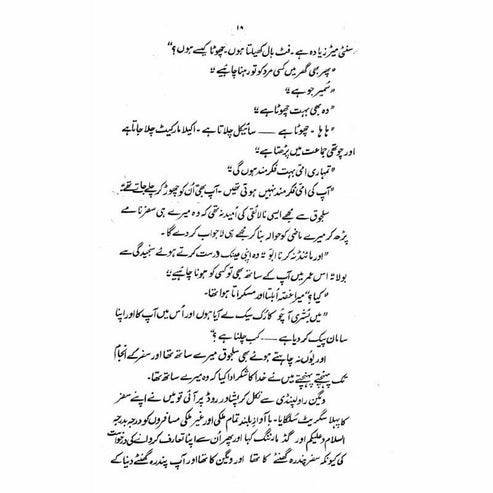 ۱۸
سنٹی میٹر زیادہ ہے۔ فٹ بال کھیلتا ہوں۔ چھوٹا کیسے ہوں؟"
"پھر بھی گھر میں کسی مرد کو تو رہنا چاہیے"
"سُمیر جو ہے"
"وہ بھی بہت چھوٹا ہے"
"ہا ہا۔ چھوٹا ہے —— سائیکل چلاتا ہے۔ اکیلا مارکیٹ چلا جاتا ہے
اور چوتھی جماعت میں پڑھتا ہے"
"تمہاری امّی بہت فکرمند ہوں گی"
"آپ کی امّی فکرمند نہیں ہوتی تھیں۔ آپ بھی اُن کو چھوڑ کر چلے جاتے تھے"
سلجوق سے مجھے ایسی نالائقی کی اُمید نہ تھی کہ وہ میرے ہی سفرنامے
پڑھ کر میرے ماضی کو حوالہ بنا کر مجھے ہی لاجواب کر دے گا۔
"اور مائنڈ نہ کرنا ابّو" وہ اپنی عینک درست کرتے ہوئے سنجیدگی سے
بولا "اس عمر میں آپ کے ساتھ بھی تو کسی کو ہونا چاہیے"
"کیا؟" میرا غصّہ اُبلتا اور مسکراتا ہوا تھا۔
"میں بُشریٰ آپو کا رُک سیک لے آیا ہوں اور اُس میں آپ کا اور اپنا
سامان پیک کر دیا ہے —— کب چلنا ہے؟"
اور یوں نہ چاہتے ہوئے بھی سلجوق میرے ساتھ تھا اور سفر کے انجام
تک پہنچتے پہنچتے میں نے خدا کا شکر ادا کیا کہ وہ میرے ساتھ تھا۔
ویگن راولپنڈی سے نکل کر پشاور روڈ پر آئی تو میں نے اپنے سفر
کا پہلا سگریٹ سُلگایا۔ بآوازِ بلند تمام ملکی اور غیر ملکی مسافروں کو درجہ بدرجہ
السلام وعلیکم اور گڈ مارننگ کہا اور پھر اُن سے اپنا تعارف کروانے کی درخواست
کی کیونکہ سفر پندرہ گھنٹے کا تھا اور ویگن کا تھا اور آپ پندرہ گھنٹے دنیا کے